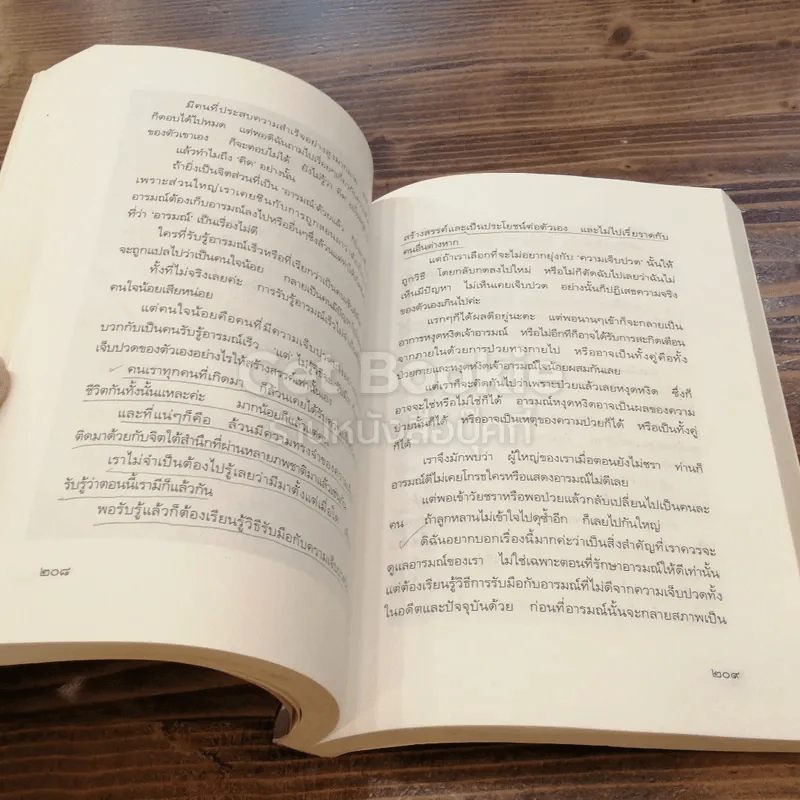 มีคนที่ประสบความสำเร็จอย่างสูงมากมาย
ก็ตอบได้ไปหมด แต่พอดิฉันถามไปเรื่อยๆ
ของตัวเขาเอง ก็จะตอบไม่ได้ ยังไม่รู้ว่า
แล้วทำไมถึง 'คิด' อย่างนั้น
ถ้ายิ่งเป็นจิตส่วนที่เป็น 'อารมณ์' ด้วยแล้ว
เพราะส่วนใหญ่เราเคยชินกับการถูกสอนมาว่า
อารมณ์ต้องเก็บอารมณ์ลงไปหรืออื่นๆซึ่งล้วน
ที่ว่า 'อารมณ์' เป็นเรื่องไม่ดี
ใครที่รับรู้อารมณ์เร็วหรือที่เรียกว่าเป็นคน
จะถูกแปลไปว่าเป็นคนใจน้อย กลายเป็นคนมีปัญหา
ทั้งที่ไม่จริงเลยค่ะ การรับรู้อารมณ์เร็ว
คนใจน้อยเสียหน่อย
แต่คนใจน้อยคือคนที่มีความเจ็บปวด
บวกกับเป็นคนรับรู้อารมณ์เร็ว แต่
เจ็บปวดของตัวเองอย่างไรให้สร้างสรรค์เท่านั้นเอง
คนเราทุกคนที่เกิดมา ล้วนเคยได้รับ
ชีวิตกันทั้งนั้นแหละค่ะ มากน้อยก็แล้วแต่
และที่แน่ๆก็คือ ล้วนมีความทรงจำของความ
ติดมาด้วยกับจิตใต้สำนึกที่ผ่านหลายภพชาติมาแล้ว
เราไม่จำเป็นต้องไปรู้เลยว่ามีมาตั้งแต่เมื่อใด
รับรู้ว่าตอนนี้เรามีก็แล้วกัน
พอรับรู้แล้วก็ต้องเรียนรู้วิธีรับมือกับความเจ็บปวด
๒๐๘
สร้างสรรค์และเป็นประโยชน์ต่อตัวเอง และไม่ไปเรี่ยราดกับ
คนอื่นต่างหาก
แต่ถ้าเราเลือกที่จะไม่อยากยุ่งกับ 'ความเจ็บปวด' นั้นให้
ถูกวิธี โดยกลับกดลงไปใหม่ หรือไม่ก็ตัดฉับไปเลยว่าฉันไม่
เห็นมีปัญหา ไม่เห็นเคยเจ็บปวด อย่างนั้นก็ปฏิเสธความจริง
ของตัวเองเกินไปค่ะ
แรกๆก็ได้ผลดีอยู่นะคะ แต่พอนานๆเข้าก็จะกลายเป็น
อาการหงุดหงิดเจ้าอารมณ์ หรือไม่อีกทีก็อาจได้รับการสะกิดเตือน
จากภายในด้วยการป่วยทางกายไป หรืออาจเป็นทั้งคู่คือทั้ง
ป่วยกายและหงุดหงิดเจ้าอารมณ์ใจน้อยผสมกันเลย
แต่เราก็จะคิดกันไปว่าเพราะป่วยแล้วเลยหงุดหงิด ซึ่งก็
อาจจะใช่หรือไม่ใช่ก็ได้ อารมณ์หงุดหงิดอาจเป็นผลของความ
ป่วยนั้นก็ได้ หรืออาจเป็นเหตุของความป่วยก็ได้ หรือเป็นทั้งคู่
ก็ได้
เราจึงมักพบว่า ผู้ใหญ่ของเราเมื่อตอนยังไม่ชรา ท่านก็
อารมณ์ดีไม่เคยโกรธใครหรือแสดงอารมณ์ไม่ดีเลย
แต่พอเข้าวัยชราหรือพอป่วยแล้วกลับเปลี่ยนไปเป็นคนละ
คน ถ้าลูกหลานไม่เข้าใจไปดุซ้ำอีก ก็เลยไปกันใหญ่
ดิฉันอยากบอกเรื่องนี้มากค่ะว่าเป็นสิ่งสำคัญที่เราควรจะ
ดูแลอารมณ์ของเรา ไม่ใช่เฉพาะตอนที่รักษาอารมณ์ให้ดีเท่านั้น
แต่ต้องเรียนรู้วิธีการรับมือกับอารมณ์ที่ไม่ดีจากความเจ็บปวดทั้ง
ในอดีตและปัจจุบันด้วย ก่อนที่อารมณ์นั้นจะกลายสภาพเป็น
๒๐๙
Get Bookie
ร้านหนังสือบุ๊คกี้